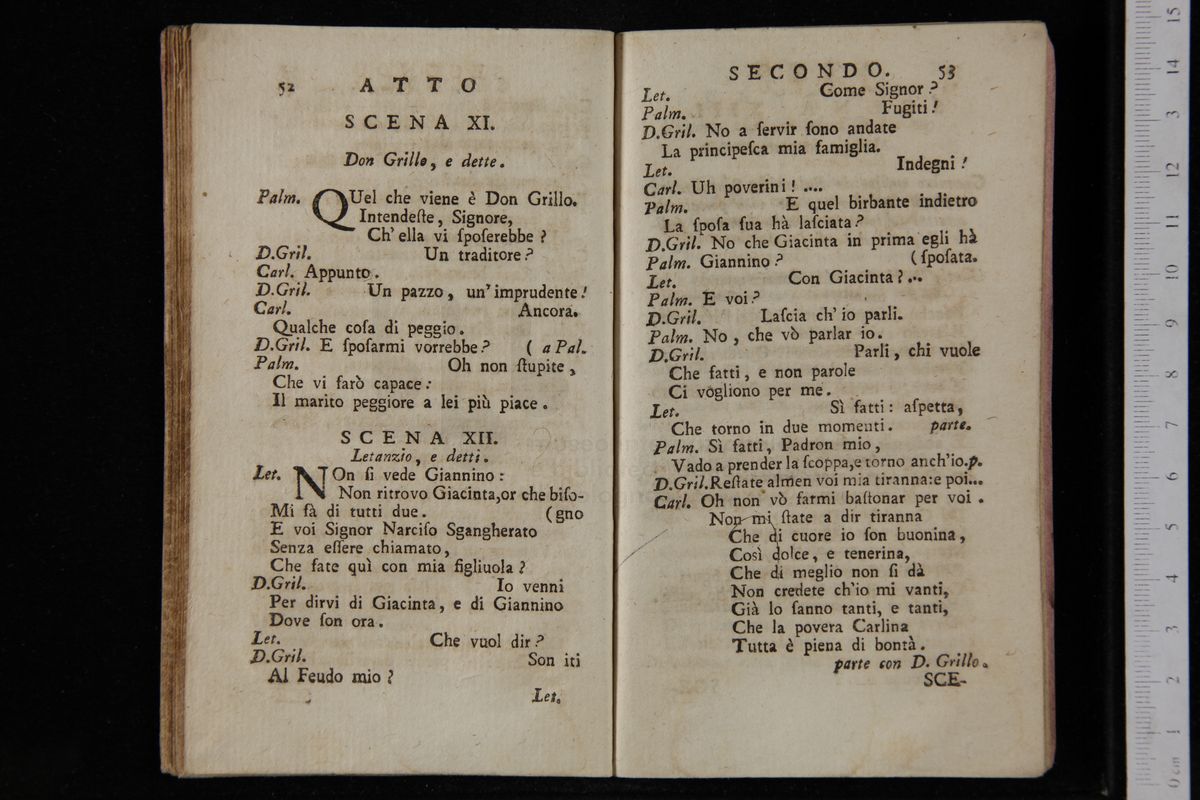 52 ATTO
SCENA XI.
Don Grillo, e dette.
Palm. QUel che viene è Don Grillo.
Intendeſte, Signore,
Ch' ella vi ſpoſerebbe?
D.Gril. Un traditore?
Carl. Appunto.
D.Gril. Un pazzo, un' imprudente!
Carl. Ancora.
Qualche coſa di peggio.
D.Gril. E ſpoſarmi vorrebbe? ( a Pal.
Palm. Oh non ſtupite,
Che vi farò capace:
Il marito peggiore a lei più piace.
SCENA XII.
Letanzio, e detti.
Let. NOn ſi vede Giannino:
Non ritrovo Giacinta,or che biſo-
Mi fà di tutti due. (gno
E voi Signor Narciſo Sgangherato
Senza eſſere chiamato,
Che fate quì con mia figliuola?
D.Gril. Io venni
Per dirvi di Giacinta, e di Giannino
Dove ſon ora.
Let. Che vuol dir?
D.Gril. Son iti
Al Feudo mio?
Let.
SECONDO. 53
Let. Come Signor?
Palm. Fugiti!
D.Gril. No a ſervir ſono andate
La principeſca mia famiglia.
Let. Indegni!
Carl. Uh poverini! ....
Palm. E quel birbante indietro
La ſpoſa ſua hà laſciata?
D.Gril. No che Giacinta in prima egli hà
Palm. Giannino? (ſpoſata.
Let. Con Giacinta?...
Palm. E voi?
D.Gril. Laſcia ch' io parli.
Palm. No, che vò parlar io.
D.Gril. Parli, chi vuole
Che fatti, e non parole
Ci vogliono per me.
Let. Sì fatti: aſpetta,
Che torno in due momenti. parte.
Palm. Sì fatti, Padron mio,
Vado a prender la ſcoppa,e torno anch'io.p.
D.Gril.Reſtate almen voi mia tiranna:e poi...
Carl. Oh non vò farmi baſtonar per voi.
Non mi ſtate a dir tiranna
Che di cuore io ſon buonina,
Così dolce, e tenerina,
Che di meglio non ſi dà
Non credete ch'io mi vanti,
Già lo ſanno tanti, e tanti,
Che la povera Carlina
Tutta è piena di bontà.
parte con D. Grillo.
SCE-
0 cm 1 2 3 4 5 6 7 8 9 10 11 12 13 14 15